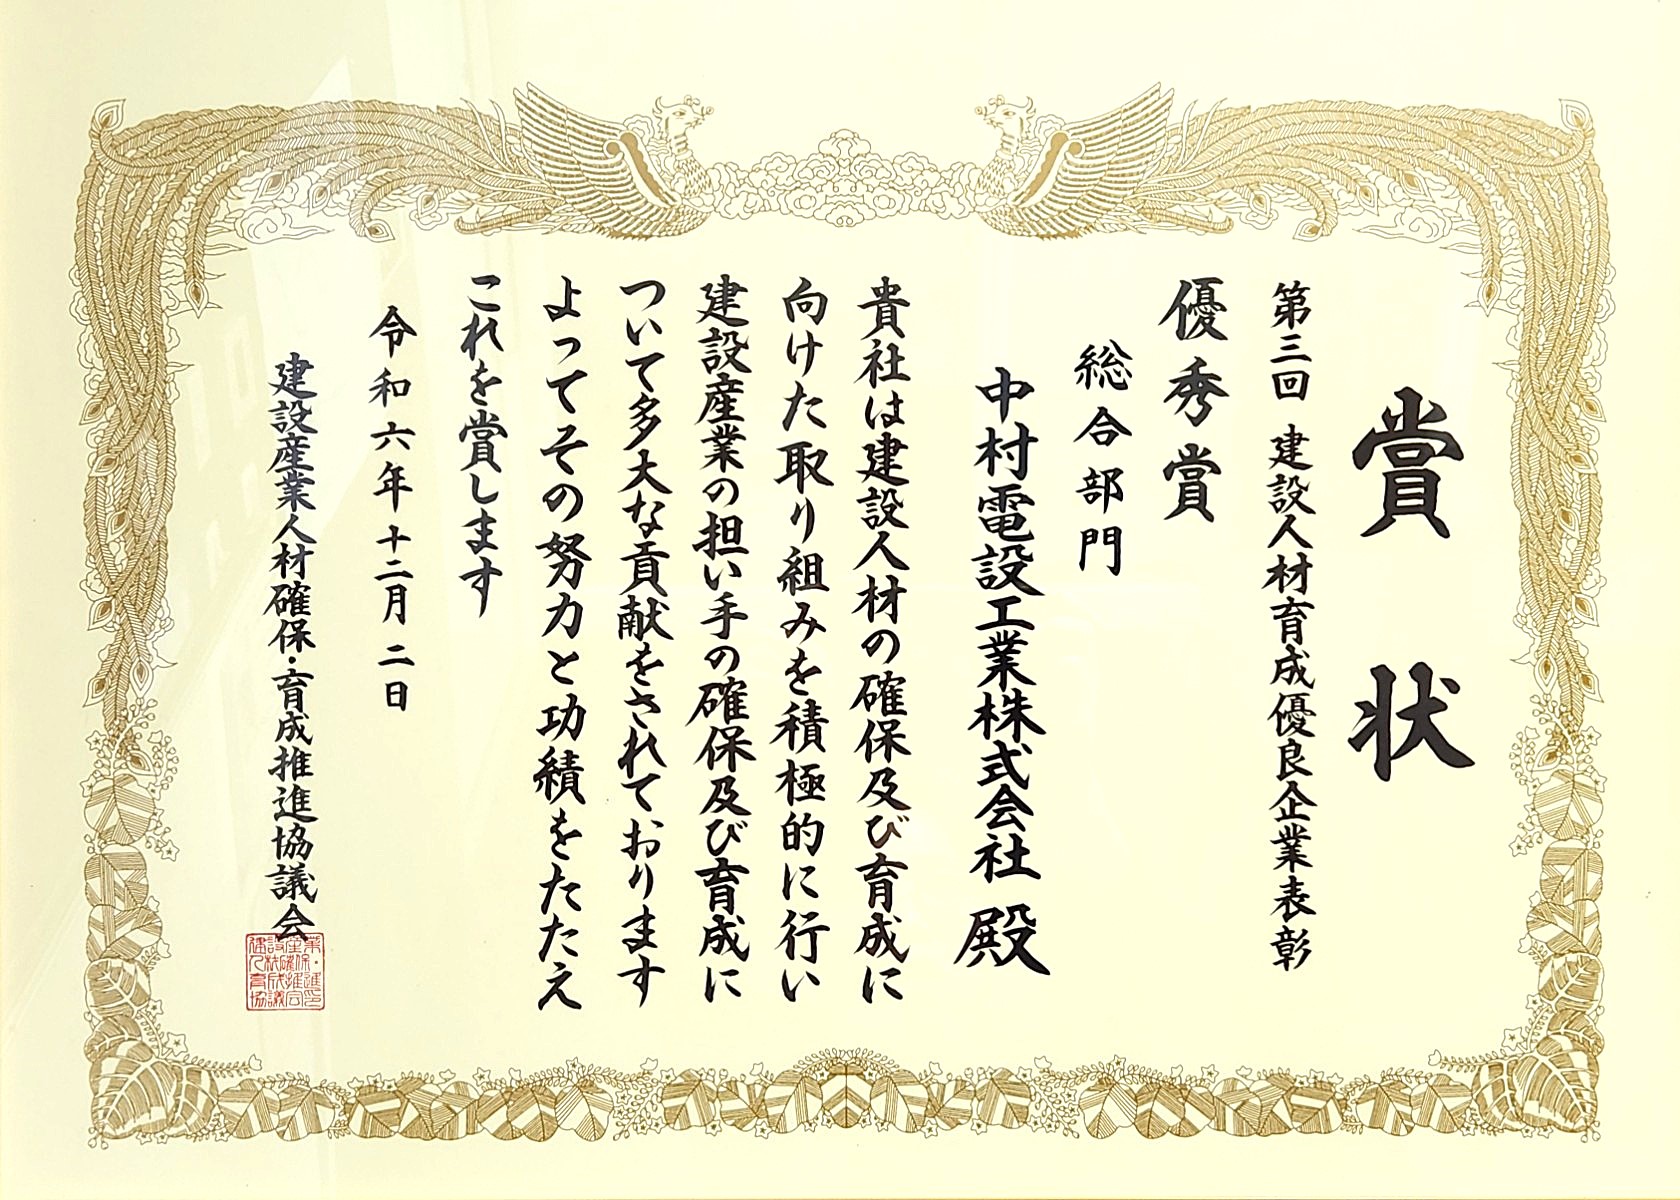 賞状
第三回 建設人材育成優良企業表彰
優秀賞
総合部門
中村電設工業株式会社 殿
貴社は建設人材の確保及び育成に
向けた取り組みを積極的に行い
建設産業の担い手の確保及び育成に
ついて多大な貢献をされております
よってその努力と功績をたたえ
これを賞します
令和六年十二月二日
建設産業人材確保・育成推進協議会